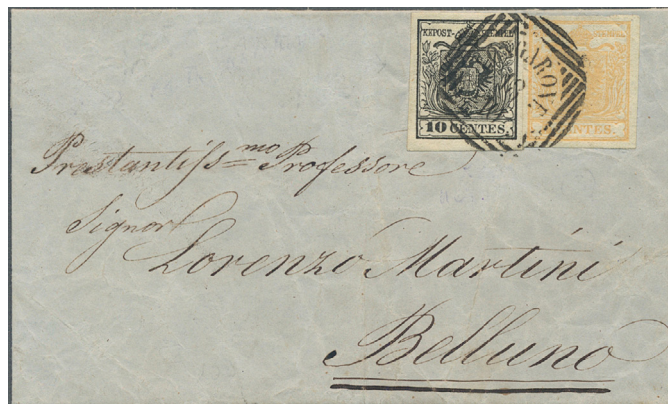 KKPOST-STEMPEL
10 CENTES.
CENTES.
LONGARONE
Prestantiss.mo Professore
Signor
Lorenzo Martini
Belluno